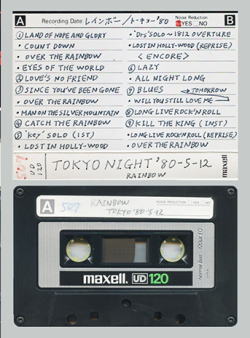 A Recording Date レインボー/トーキョー'80 Noise Reduction YES NO B
①LAND OF HOPE AND GLORY
・COUNT DOWN
・OVER THE RAINBOW
・EYES OF THE WORLD
②LOVE'S NO FRIEND
③SINCE YOU'VE BEEN GONE
・OVER THE RAINBOW
・MAN ON THE SILVER MOUNTAIN
④CATCH THE RAINBOW
⑤"key" SOLO (1ST)
・LOST IN HOLLY-WOOD
・"Drs" SOLO ~ 1812 OVERTURE
・LOST IN HOLLY-WOOD (REPRISE)
<ENCORE>
⑥LAZY
・ALL NIGHT LONG
⑦BLUES → TOMORROW
・WILL YOU STILL LOVE ME
⑧LONG LIVE ROCK'N'ROLL
⑨KILL THE KING (INST)
・LONG LIVE ROCK'N'ROLL (REPRISE)
・OVER THE RAINBOW
UD
120
TOKYO NIGHT '80-5-12
RAINBOW
maxell
A
RAINBOW
TOKYO '80-5-12
maxell. UD 120